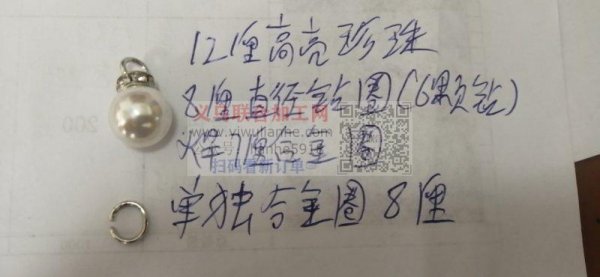 12厘高亮珍珠
8厘直径钻圈(6颗钻)
义乌联合加工网
www.yiwulianhe.com
焊7厘合金圈
扫码看新订单
单独合金圈8厘